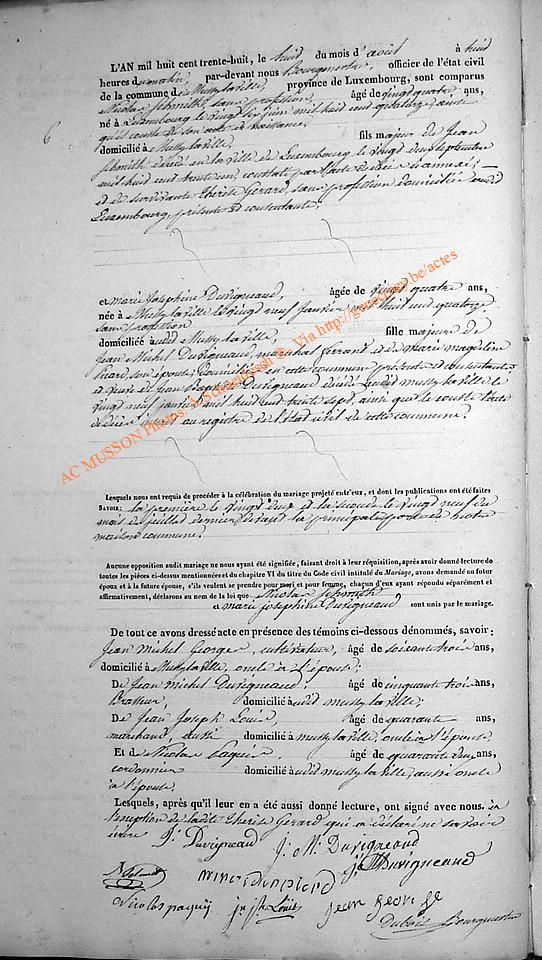 L'AN mil huit cent trente-huit, le huit du mois d'août à huit
heures du matin, par-devant nous Bourgmestre, officier de l'état civil
de la commune de Mussy la ville, province de Luxembourg, sont comparus
Nicolas Schmith, sans profession, âgé de vingt quatre ans,
né à Luxembourg le vingt six juin mil huit cent quatorze, ainsi
qu'il conste de son acte de naissance.
6
domicilié à Mussy la ville, fils majeur de Jean
Schmith décédé en la ville de Luxembourg le vingt deux septembre
mil huit cent trente un, constaté par l'acte de décès ci annexé;
et de survivante Thérèse Gerard, sans profession domiciliée audit
Luxembourg, présente et consentante;
et Marie Josephine Duvigneaud, âgée de vingt quatre ans,
née à Mussy la ville le vingt neuf janvier mil huit cent quatorze
sans profession
domiciliée audit Mussy la ville, fille majeure de
Jean Michel Duvigneaud, maréchal ferrant et de Marie Magdeleine
son épouse, domiciliés en cette commune présents et consentants
et veuve de Jean Duvigneaud décédé audit Mussy la ville le
vingt neuf janvier mil huit cent trente sept, ainsi que le conste l'acte
de décès inscrit au registre de l'état civil de cette commune.
AC MUSSON Photos: A. Via http://.be/actes
Lesquels nous ont requis de procéder à la célébration du mariage projeté entr'eux, et dont les publications ont été faites
SAVOIR: la première le vingt deux et la seconde le vingt neuf du
mois de juillet dernier devant la principale porte de notre
maison commune.
Aucune opposition audit mariage ne nous ayant été signifiée, faisant droit à leur réquisition, après avoir donné lecture de
toutes les pièces ci-dessus mentionnées et du chapitre VI du titre du Code civil intitulé du Mariage, avons demandé au futur
époux et à la future épouse, s'ils veulent se prendre pour mari et pour femme, chacun d'eux ayant répondu séparément et
affirmativement, déclarons au nom de la loi que Nicolas Schmith
et Marie Josephine Duvigneaud sont unis par le mariage.
De tout ce avons dressé acte en présence des témoins ci-dessous dénommés, savoir:
Jean Michel George, cultivateur, âgé de soixante trois ans,
domicilié à Mussy la ville, oncle à l'épouse;
De Jean Michel Duvigneaud, âgé de cinquante trois ans,
Brasseur, domicilié audit mussy la ville;
De Jean Joseph Louis, âgé de quarante ans,
marchand, aussi domicilié à mussy la ville, oncle à l'épouse
Et de Nicolas Paquin, âgé de quarante deux ans,
cordonnier domicilié audit mussy la ville, aussi oncle
à l'épouse.
Lesquels, après qu'il leur en a été aussi donné lecture, ont signé avec nous. à
l'exception de ladite Thérèse Gerard qui a déclaré ne savoir
écrire J. Duvigneaud J. M. Duvigneaud
J M Duvigneaud
N Schmit
Nicolas paquin j. jh. Louis jean george
Dubois Bourgmestre